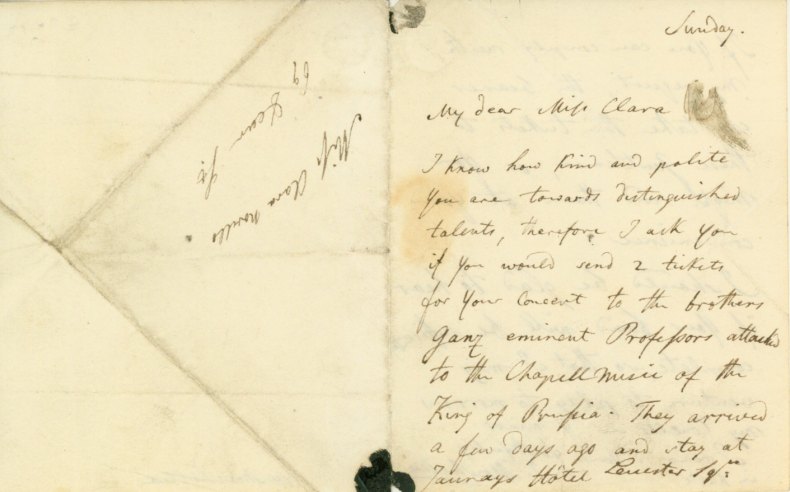 69
Dean St
Miss Clara Novello
Sunday.
My dear Miss Clara
I know how kind and polite
you are towards distinguished
talents, therefore I ask you
if you would send 2 tickets
for your Concert to the brothers
Ganz eminent Professors attached
to the Chapell Music of the
King of Prussia. They arrived
a few days ago and stay at
Hôtel Leicester Sqre